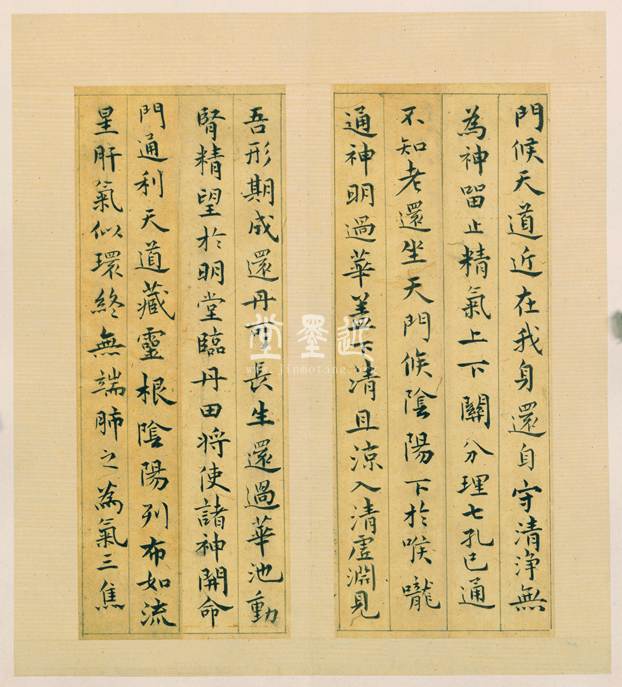 門候天道近在我身還自守清淨無
為神留止精氣上下關分理七孔已通
不知老還坐天門候陰陽下於喉嚨
通神明過華盖下清且涼入清虛淵見
吾形期成還丹可長生還過華池動
腎精望於明堂臨丹田將使諸神開命
門通利天道藏靈根陰陽列布如流
星肝氣似環終無端肺之為氣三焦
近墨堂
www.jinmotang.